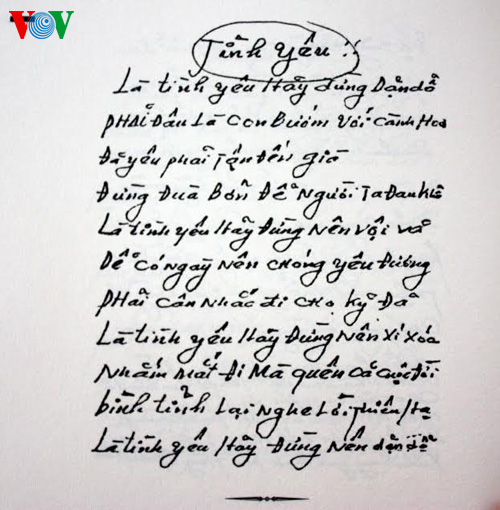 VOV
Tình yêu !!
Là tình yêu Hãy đừng Dặn dỗ
PHẢi Đâu Là con Bướm Với Cành Hoa
Đã yêu phải Tận Đến giờ
Đừng Đùa Bỡn Để Người Ta Đau khổ
Là tình yêu Hãy Đừng Nên Vội Vã
Để Có Ngày Nên CHóng yêu Đương
PHẢi Cân NHắc đi CHo Kỹ Đã
Là tình yêu Hãy Đừng Nên Xí Xóa
NHắm Mắt Đi Mà quên cả cuộc Đời
bình tĩnh Lại NgHe Lời THiên Hạ
Là tình yêu Hãy Đừng Nên